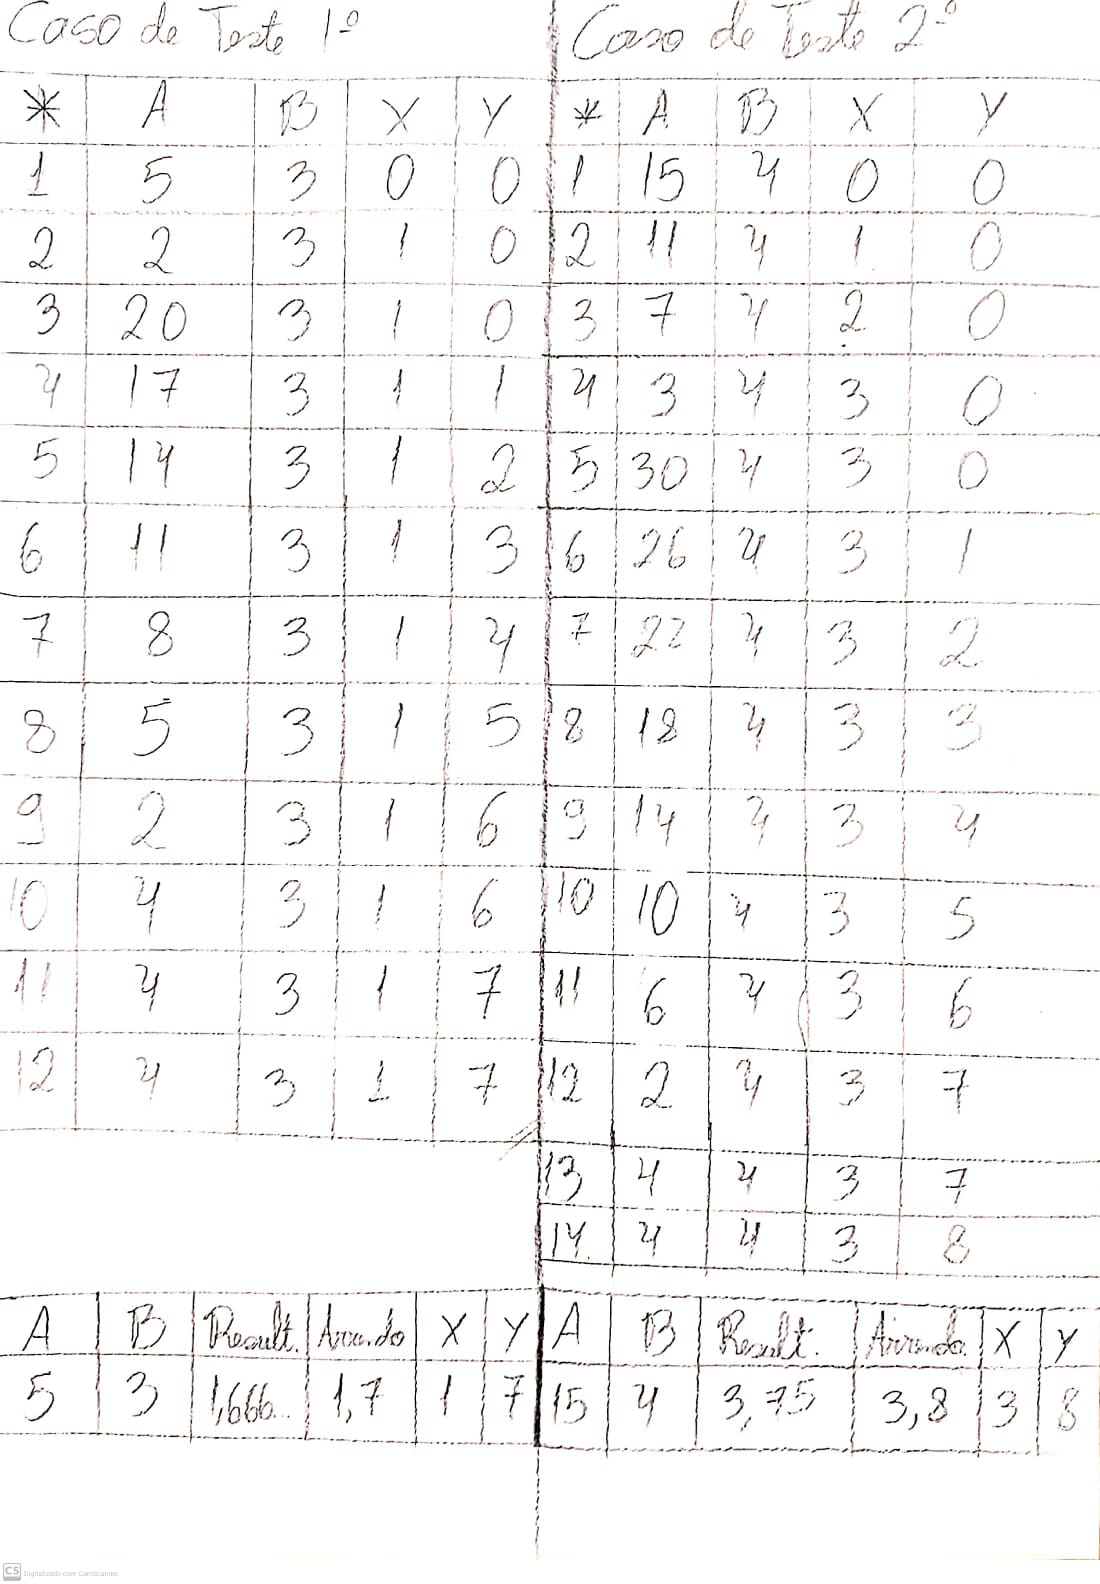 Caso de Teste 1º
* A B X Y
1 5 3 0 0
2 2 3 1 0
3 20 3 1 0
4 17 3 1 1
5 14 3 1 2
6 11 3 1 3
7 8 3 1 4
8 5 3 1 5
9 2 3 1 6
10 4 3 1 6
11 4 3 1 7
12 4 3 1 7
A B Result. Arrendo X Y
5 3 1,666... 1,7 1 7
Caso de Teste 2º
* A B X Y
1 15 4 0 0
2 11 4 1 0
3 7 4 2 0
4 3 4 3 0
5 30 4 3 0
6 26 4 3 1
7 22 4 3 2
8 18 4 3 3
9 14 4 3 4
10 10 4 3 5
11 6 4 3 6
12 2 4 3 7
13 4 4 3 7
14. 4 4 3 8
A B Result. Arrendo. X Y
15 4 3,75 3,8 3 8
CS Digitalizado com CamScanner